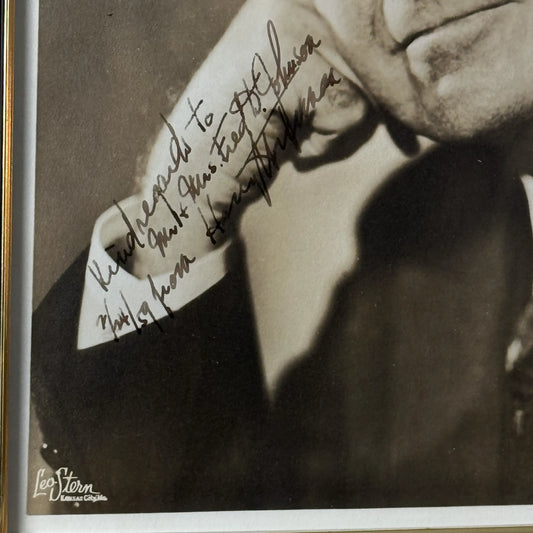 Kind regards to
Mr. & Mrs. Fred H. Johnson
2/24/59 from Harry Truman
Leo Stern
KANSAS CITY, MO.